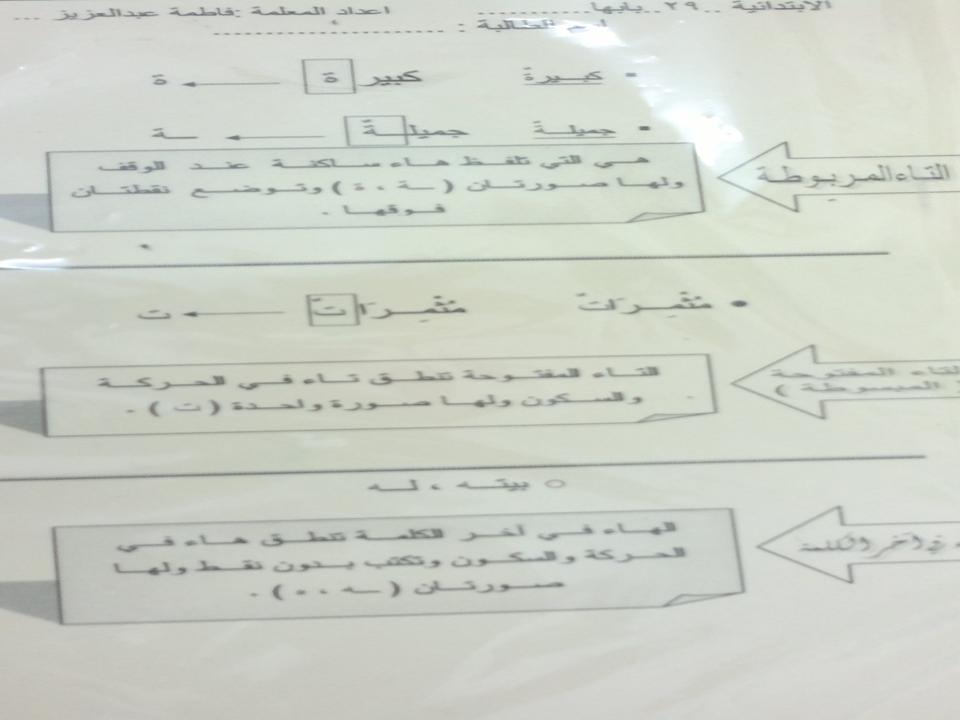 الابتدائية ..٢٩.. بابها.................. اعداد المعلمة :فاطمة عبدالعزيز ...
اسم الطالبة : ........................
• كبيرة كبيرة ة
• جميلة جميلة ـة
التاء المربوطة
هي التي تلفظ هاء ساكنة عند الوقف
ولها صورتان ( ـة ، ة ) وتوضع نقطتان
فوقها .
• مُثْمِرَاتٌ مُثْمِرَاتٌ ت
التاء المفتوحة
( المبسوطة )
التاء المفتوحة تنطق تاء في الحركة
والسكون ولها صورة واحدة ( ت ) .
○ بيته ، له
في آخر الكلمة
الهاء في آخر الكلمة تنطق هاء في
الحركة والسكون وتكتب بدون نقط ولها
صورتان ( ـه ، ه ) .